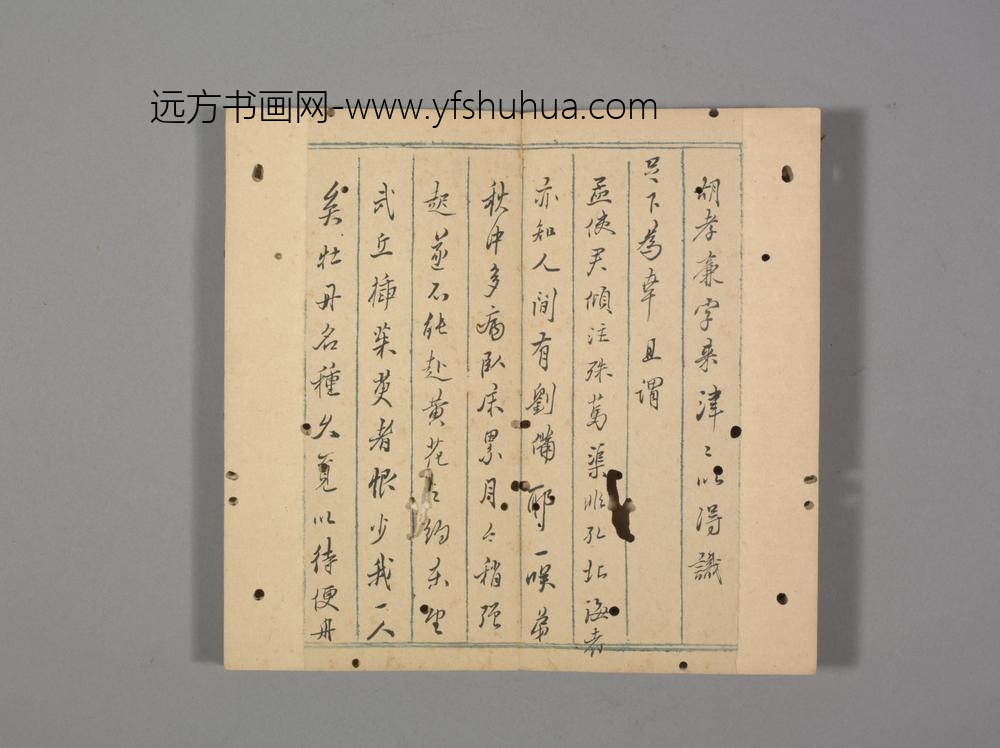 远方书画网-www.yfshuhua.com
胡孝廉字来津ゝ以得識
足下為幸且謂
孟侯君傾注殊萬渠以孔北海者
亦知人間有劉備耶一嘆弟
秋中多病臥床累月今稍强
起遂不能赴黄花之約東望
武丘插茱萸者恨少我一人
矣牡丹名種久覓以待便舟